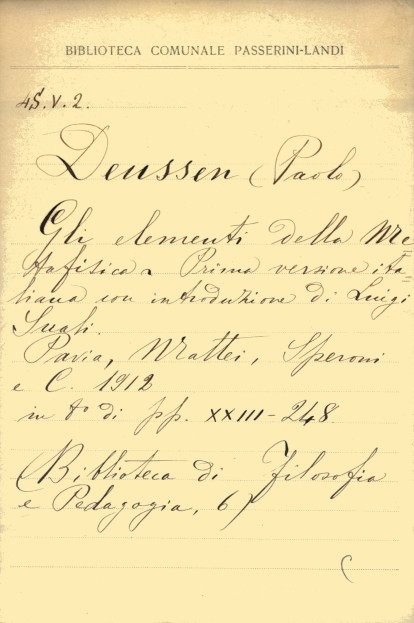 BIBLIOTECA COMUNALE PASSERINI-LANDI
45.V.2.
Deussen (Paolo)
Gli elementi della Me=
tafisica. Prima versione ita=
liana con introduzione di Luigi
Suali.
Pavia, Mattei, Speroni
e C. 1912
in 8º di pp. XXIII-248.
(Biblioteca di Filosofia
e Pedagogia, 6)